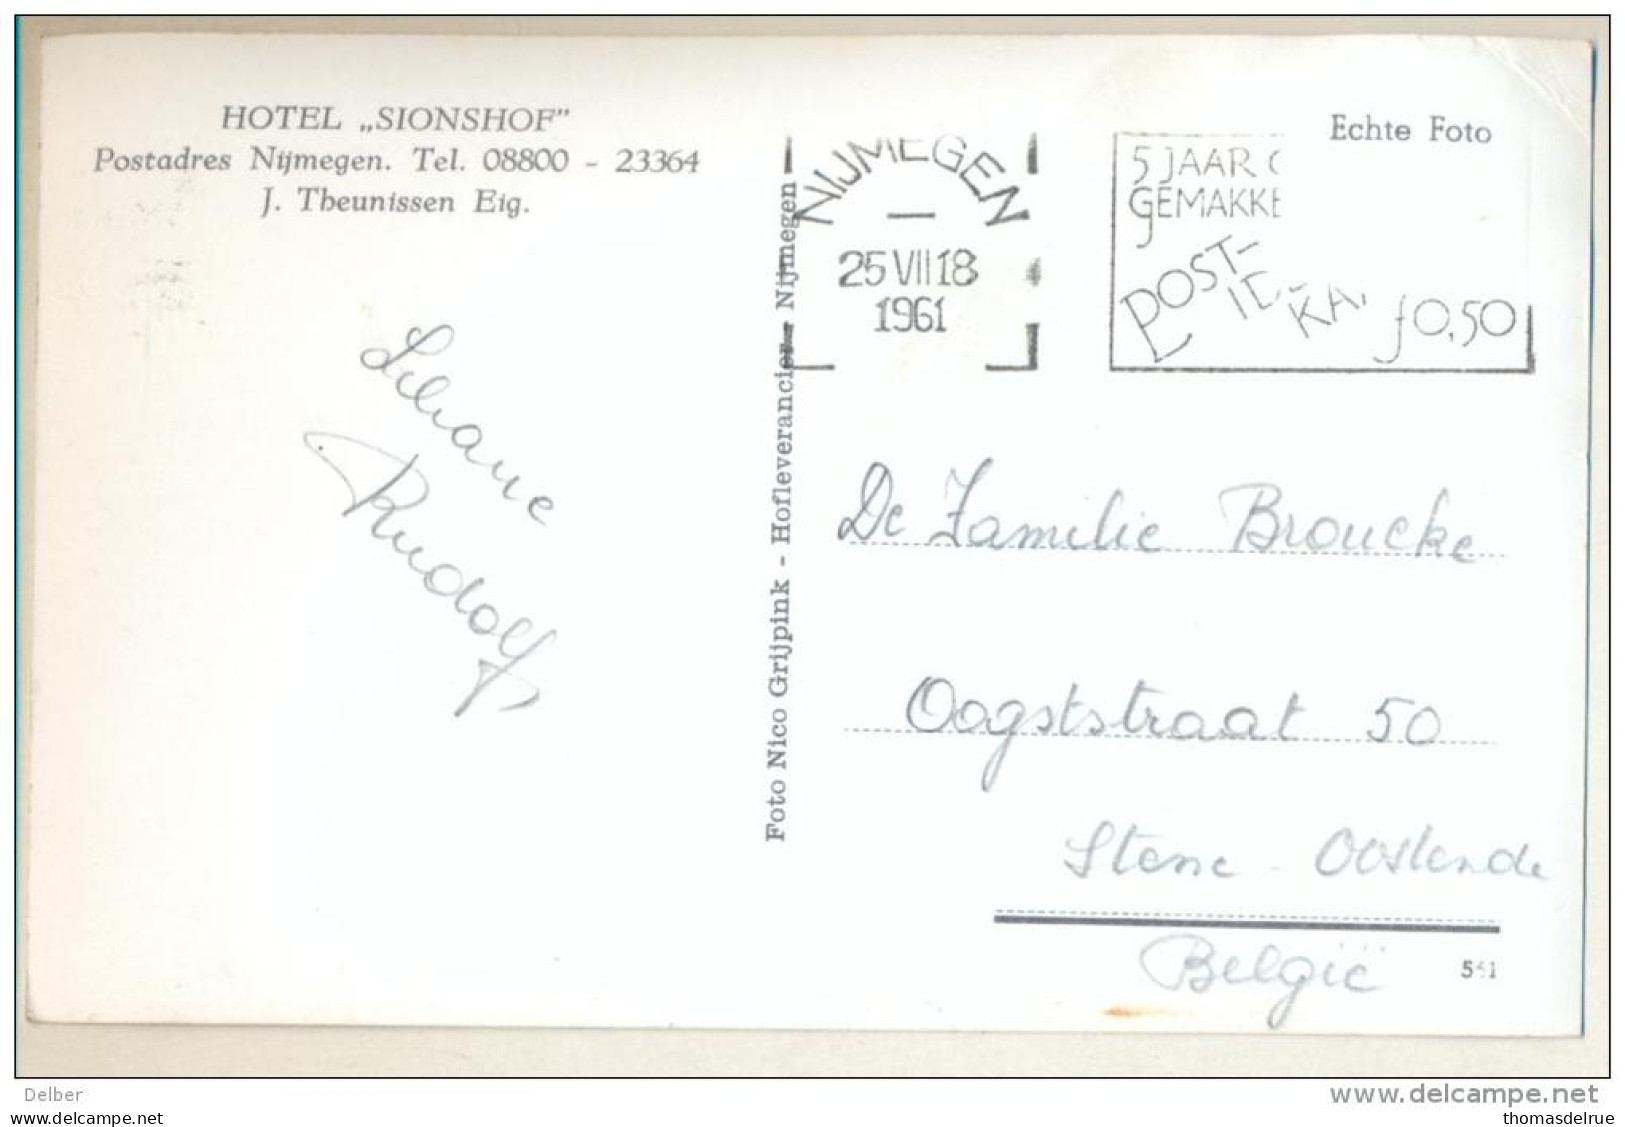 HOTEL „SIONSHOF”
Postadres Nijmegen. Tel. 08800 - 23364
J. Theunissen Eig.
Liliane
Rudolf
Foto Nico Grijpink - Hofleverancier - Nijmegen
NIJMEGEN
25 VII 18
1961
4
5 JAAR
GEMAKKE
POST-
ID-
KA
f0,50
Echte Foto
De Familie Broucke
Oogststraat 50
Stene - Oostende
België
Delber
www.delcampe.net
thomasdelrue
thomasdelrue